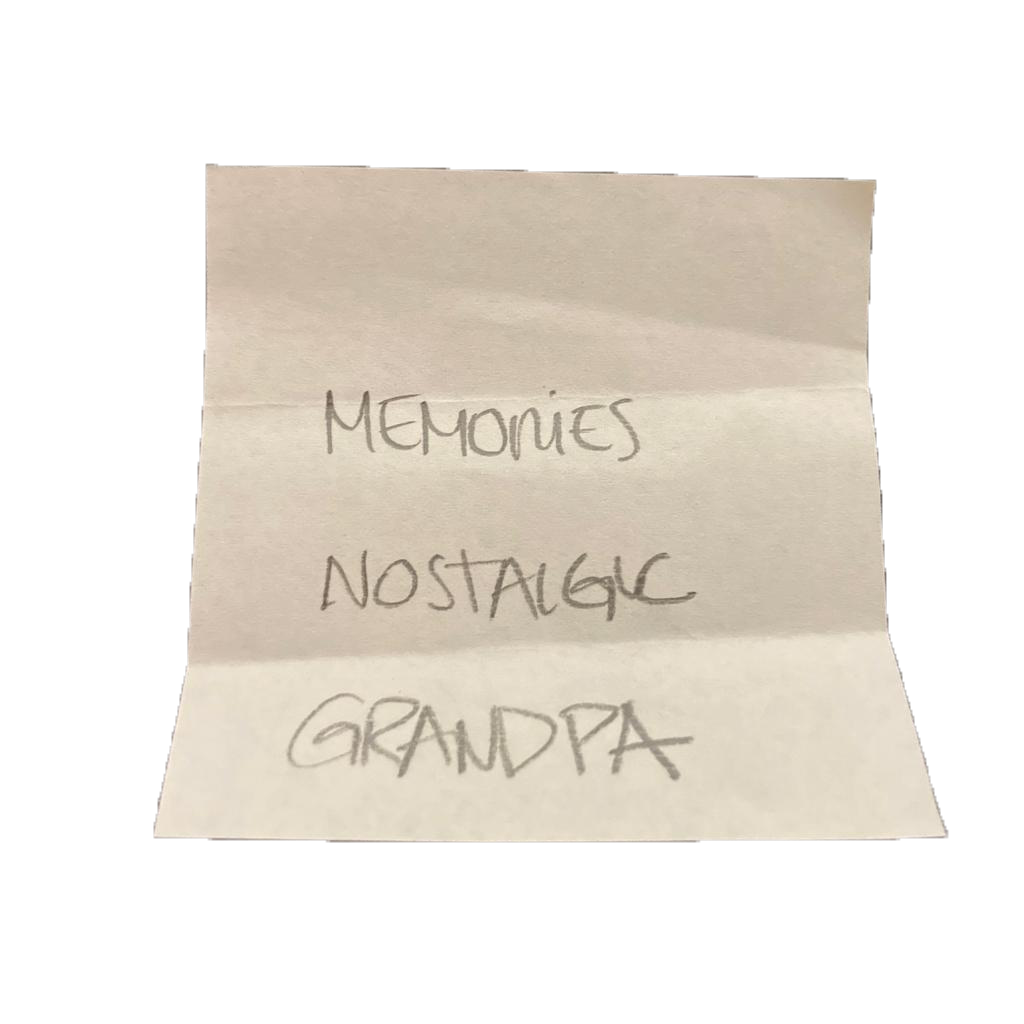 MEMORiES
NOSTALGIC
GRANDPA